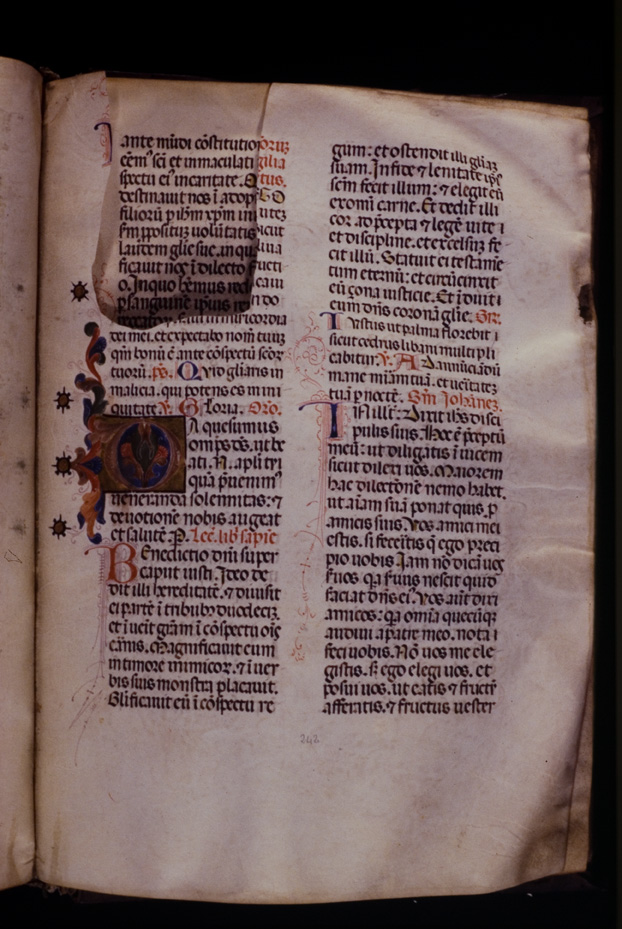 ante mũdi cõstitutio orũz
cẽm' sci et inmaculati gilia
spectu ei' incaritate. tus.
destinauit nos ĩ adop EGO
filiorũ p ihm xpm in
fm ppositũ uolũtatis sicut
laudem glie sue. in qu
ficauit nos ĩ dilecto
o. In quo hẽmus red
p sanguinẽ ipsius
misericordia
dei mei. et expectabo nom tuũz
qm bonũ ẽ ante cõspectũ scõr
tuorũ. p̃s. Quid gliaris in
malicia. qui potens es in ini
quitate. v̓. Gloria. Oro.
A quesumus
omps ds. ut be
ati .N. apli tui
quã p̃uenim'
ueneranda solemnitas: ⁊
deuotionẽ nobis augeat
et salutẽ. P. Lec. lib̃ sapie
Benedictio dñi super
caput iusti. Ideo de
dit illi hereditatẽ. ⁊ diuisit
ei partẽ ĩ tribubȝ duodecĩz.
et ĩueit grãm ĩ cõspectu oĩs
carnis. Magnificauit eum
in timore inimicoȝ. ⁊ ĩ uer
bis suis monstra placauit.
Glificauit eũ ĩ cõspectu re
gum: et ostendit illi gliaz
suam. In fide ⁊ lenitate ipsi'
scm fecit illum: ⁊ elegit eũ
ex omi carne. Et dedit illi
cor ad p̃cepta ⁊ legẽ uite ⁊
et discipline. et excelsũz fe
cit illũ. Statuit ei testamẽ
tum eternũ: et circũcinxit
eũ çona iusticie. Et ĩduit ĩ
eum dñs coronã glie. Gr̃.
Iustus ut palma florebit ⁊
sicut cedrus libani multipli
cabitur. v̓. Ad annũciãdũ
mane miãm tuã. et ueritatẽz
tuã p noctẽ. Sm̃ Iohãnez.
In illt̃: Dixit ihs disci
pulis suis. Hoc ẽ p̃ceptũ
meũ: ut diligatis ĩ uicem
sicut dilexi uos. Maiorem
hac dilectõnẽ nemo habet.
ut aiãm suã ponat quis. p
amicis suis. Vos amici mei
estis. si feceitis q̃ ego preci
pio uobis. Iam nõ dicã uos
s̃uos. qa s̃uus nescit quid
faciat dñs ei'. Vos aũt dixi
amicos: qa omia quecũqȝ
audiui a patre meo. nota ⁊
feci uobis. Nõ uos me ele
gistis. sȝ ego elegi uos. et
posui uos. ut eatis ⁊ fructũ
afferatis. ⁊ fructus uester
242